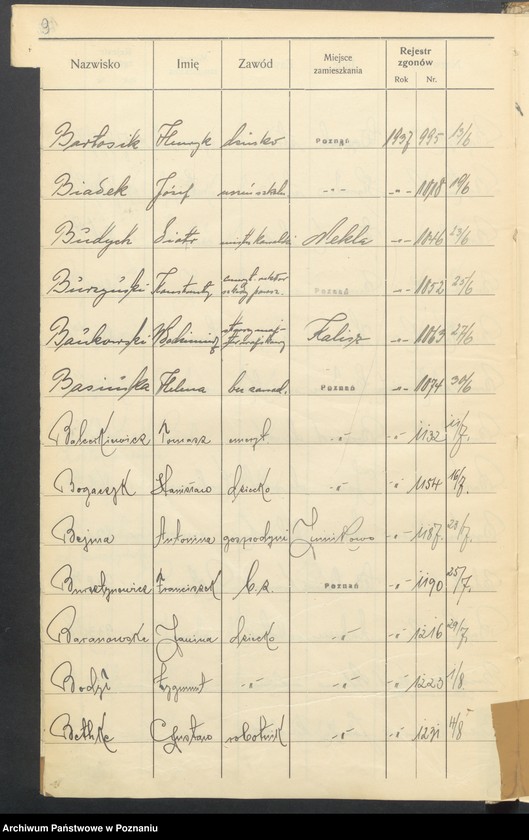 9
Nazwisko Imię Zawód Miejsce zamieszkania Rejestr zgonów
Rok Nr.
Bartosik Henryk Poznań 1937 995 13/6
Biadek Józef -"- -"- 1018 19/6
Budych Piotr Nekla -"- 1046 23/6
Burzyński Konstanty Poznań -"- 1052 25/6
Bańkowski Kalisz -"- 1063 27/6
Basińska Helena bez zawod. Poznań -"- 1074 30/6
Balcerkiewicz Tomasz emeryt. -"- -"- 1132 11/7.
Bogaczyk Stanisław dziecko -"- -"- 1154 16/7.
Bejma Antonina gospodyni -"- 1187. 23/7.
Bursztynowicz Franciszek b.z. Poznań -"- 1190 25/7.
Baranowska Janina dziecko -"- -"- 1216 29/7.
Bodył Zygmunt -"- -"- -"- 1223 1/8.
Bethke Gustaw robotnik -"- -"- 1231 4/8
Archiwum Państwowe w Poznaniu